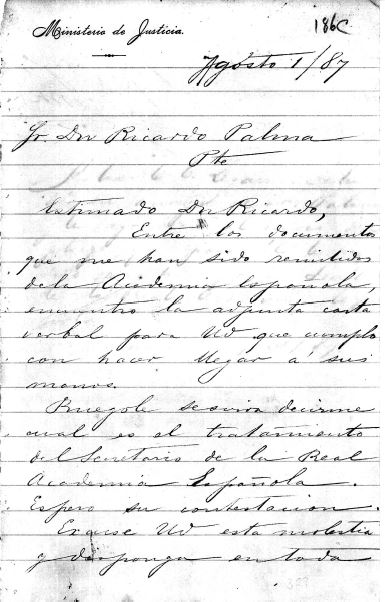 186C
Ministerio de Justicia.
Agosto 1/87
Sr. Dn Ricardo Palma
Pte
Estimado Dn Ricardo,
Entre los documentos
que me han sido remitidos
de la Academia Española,
encuentro la adjunta carta
verbal para Ud que cumplo
con hacer llegar á sus
manos.
Ruegole se sirva decirme
cual es el tratamiento
del Secretario de la Real
Academia Española.
Espero su contestacion.
Excuse Ud esta molestia
y disponga en toda